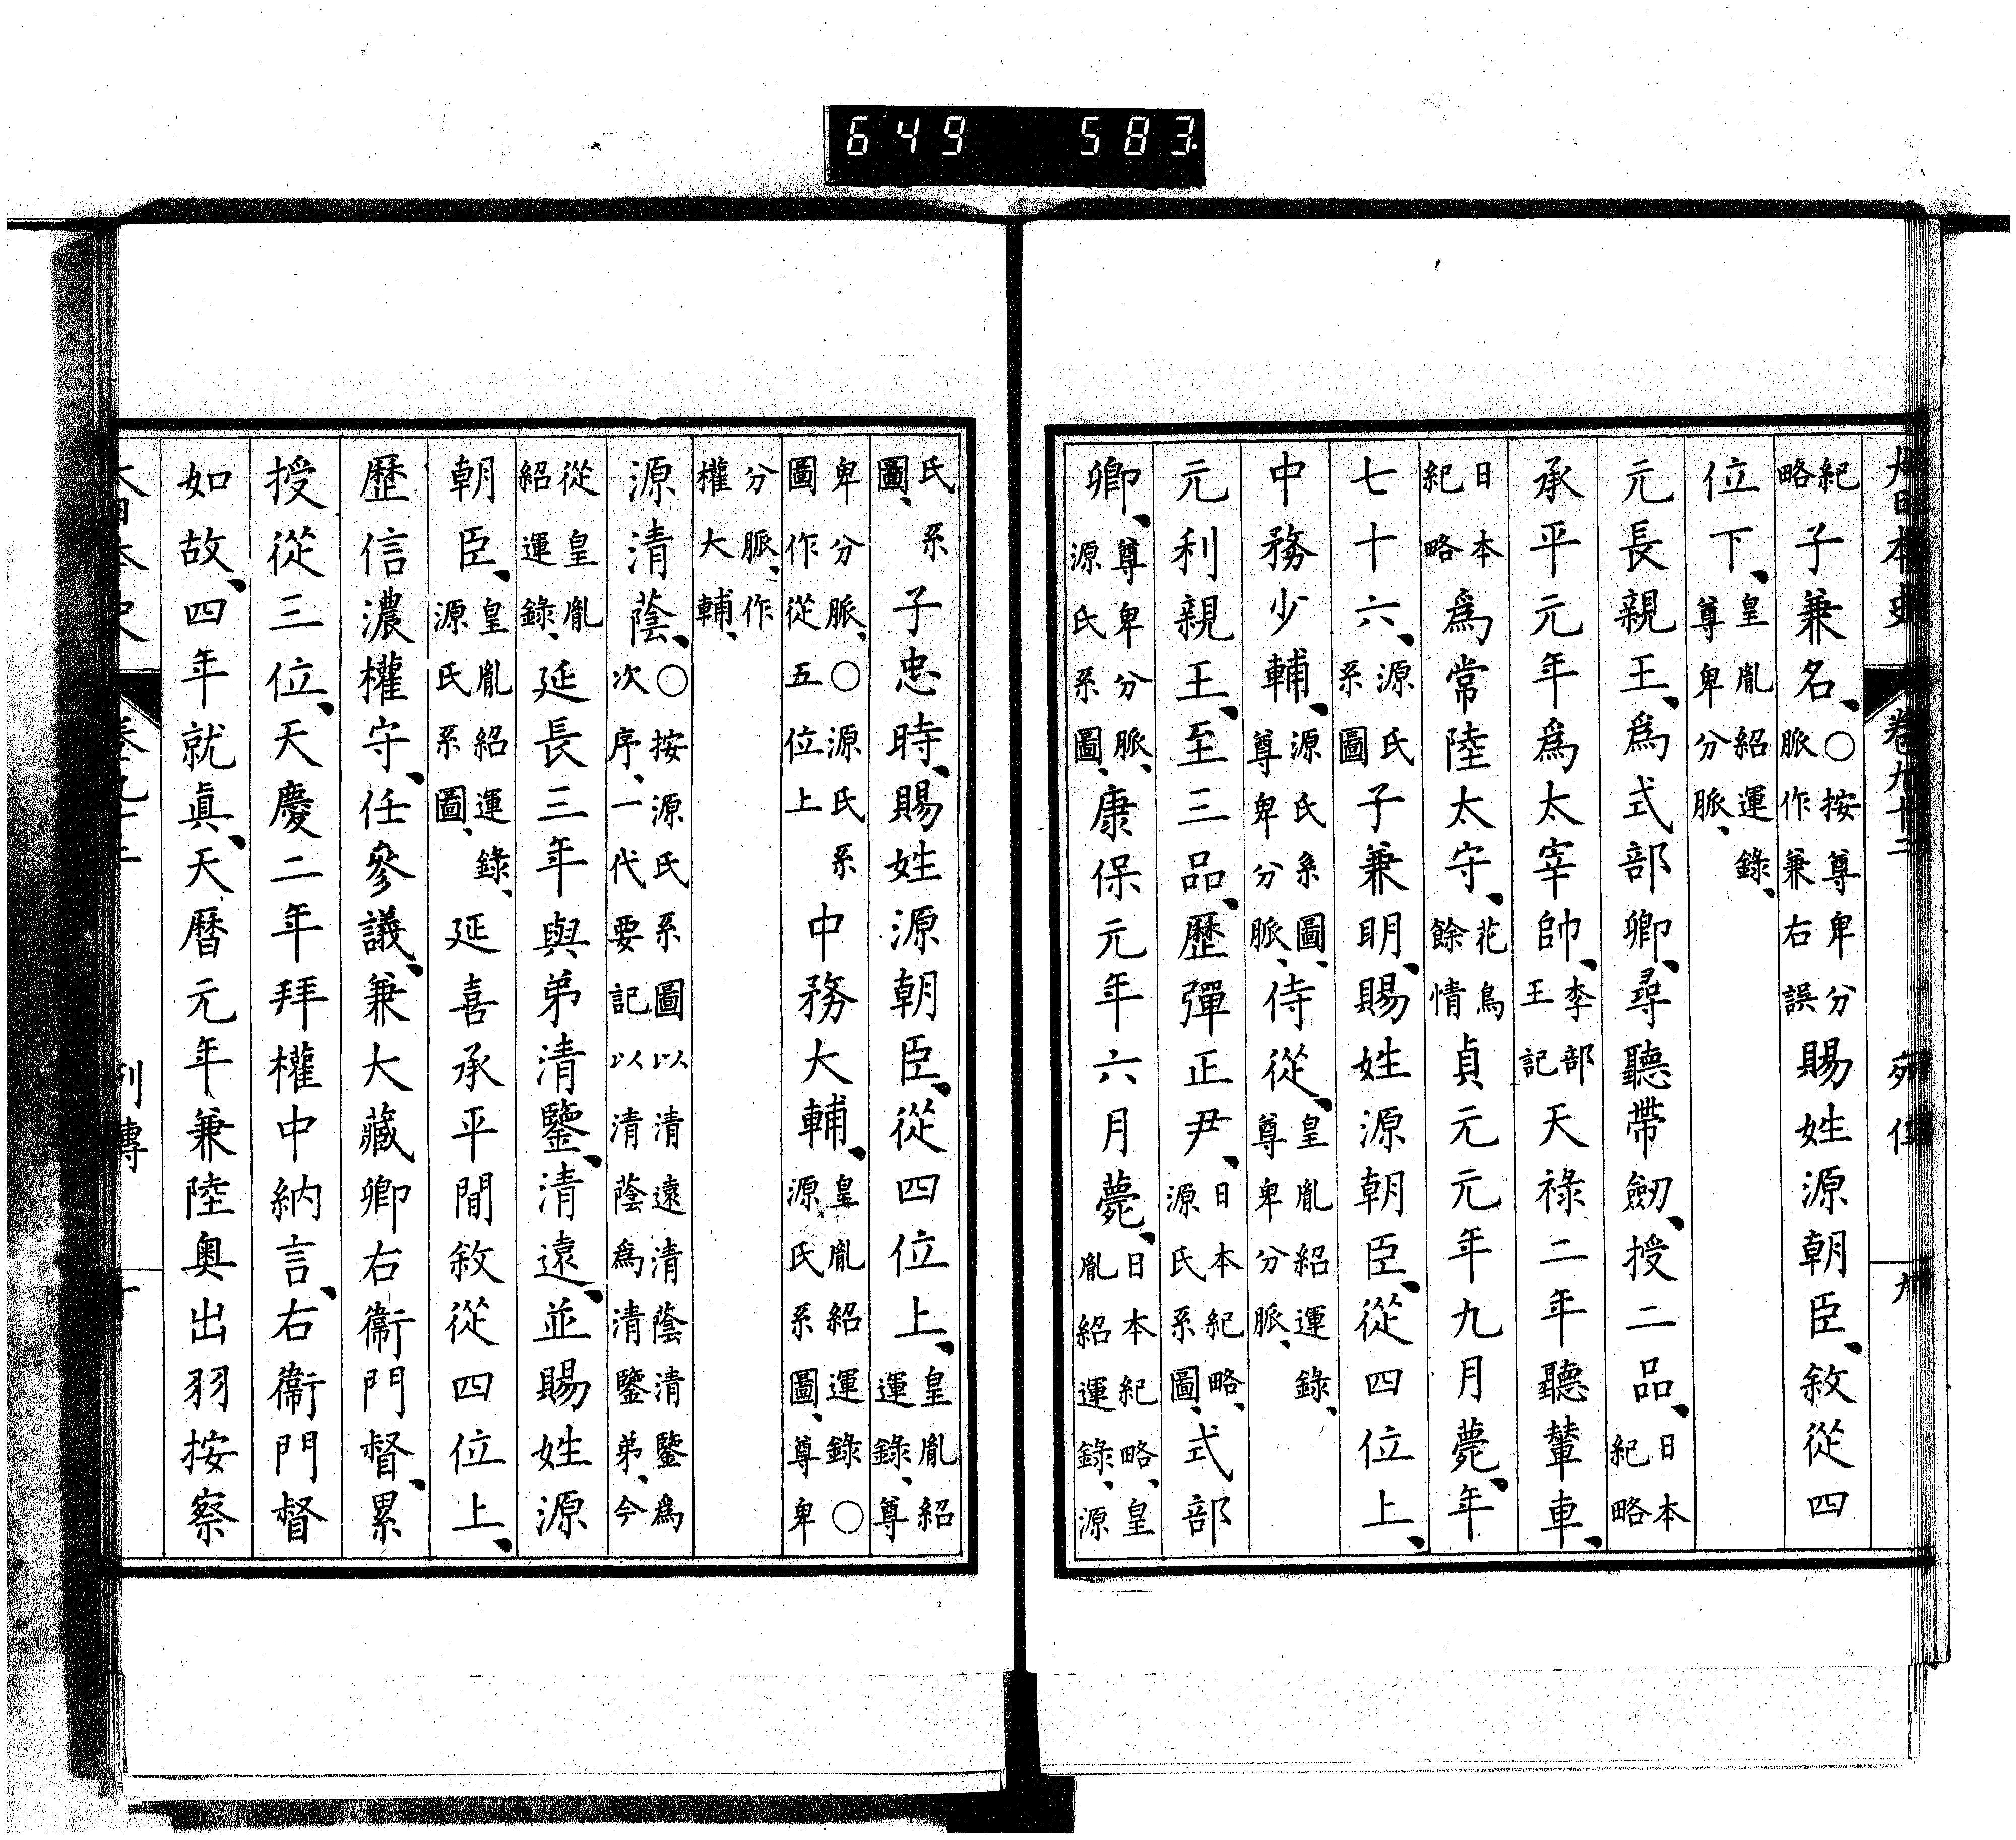 649 583
大日本史 卷九十二 列傳 九
紀略子兼名、○按尊卑分脈作兼右誤賜姓源朝臣、敘從四
位下、皇胤紹運錄、尊卑分脈、
元長親王、爲式部卿、尋聽帶劒、授二品、日本紀略
承平元年爲太宰帥、李部王記天祿二年聽輦車、
日本紀略爲常陸太守、花鳥餘情貞元元年九月薨、年
七十六、源氏系圖子兼明、賜姓源朝臣、從四位上、
中務少輔、源氏系圖、尊卑分脈、侍從、皇胤紹運錄、尊卑分脈、
元利親王、至三品、歷彈正尹、日本紀略、源氏系圖、式部
卿、尊卑分脈、源氏系圖、康保元年六月薨、日本紀略、皇胤紹運錄、源
氏系圖、子忠時、賜姓源朝臣、從四位上、皇胤紹運錄、尊
卑分脈、○源氏系圖作從五位上中務大輔、皇胤紹運錄○源氏系圖、尊卑
分脈、作權大輔、
源清蔭、○按源氏系圖以清遠清蔭清鑒爲次序、一代要記以清蔭爲清鑒弟、今
從皇胤紹運錄、延長三年與弟清鑒、清遠、並賜姓源
朝臣、皇胤紹運錄、源氏系圖、延喜承平間敘從四位上、
歷信濃權守、任參議、兼大藏卿右衞門督、累
授從三位、天慶二年拜權中納言、右衞門督
如故、四年就眞、天曆元年兼陸奧出羽按察
大日本史 卷九十二 列傳 十